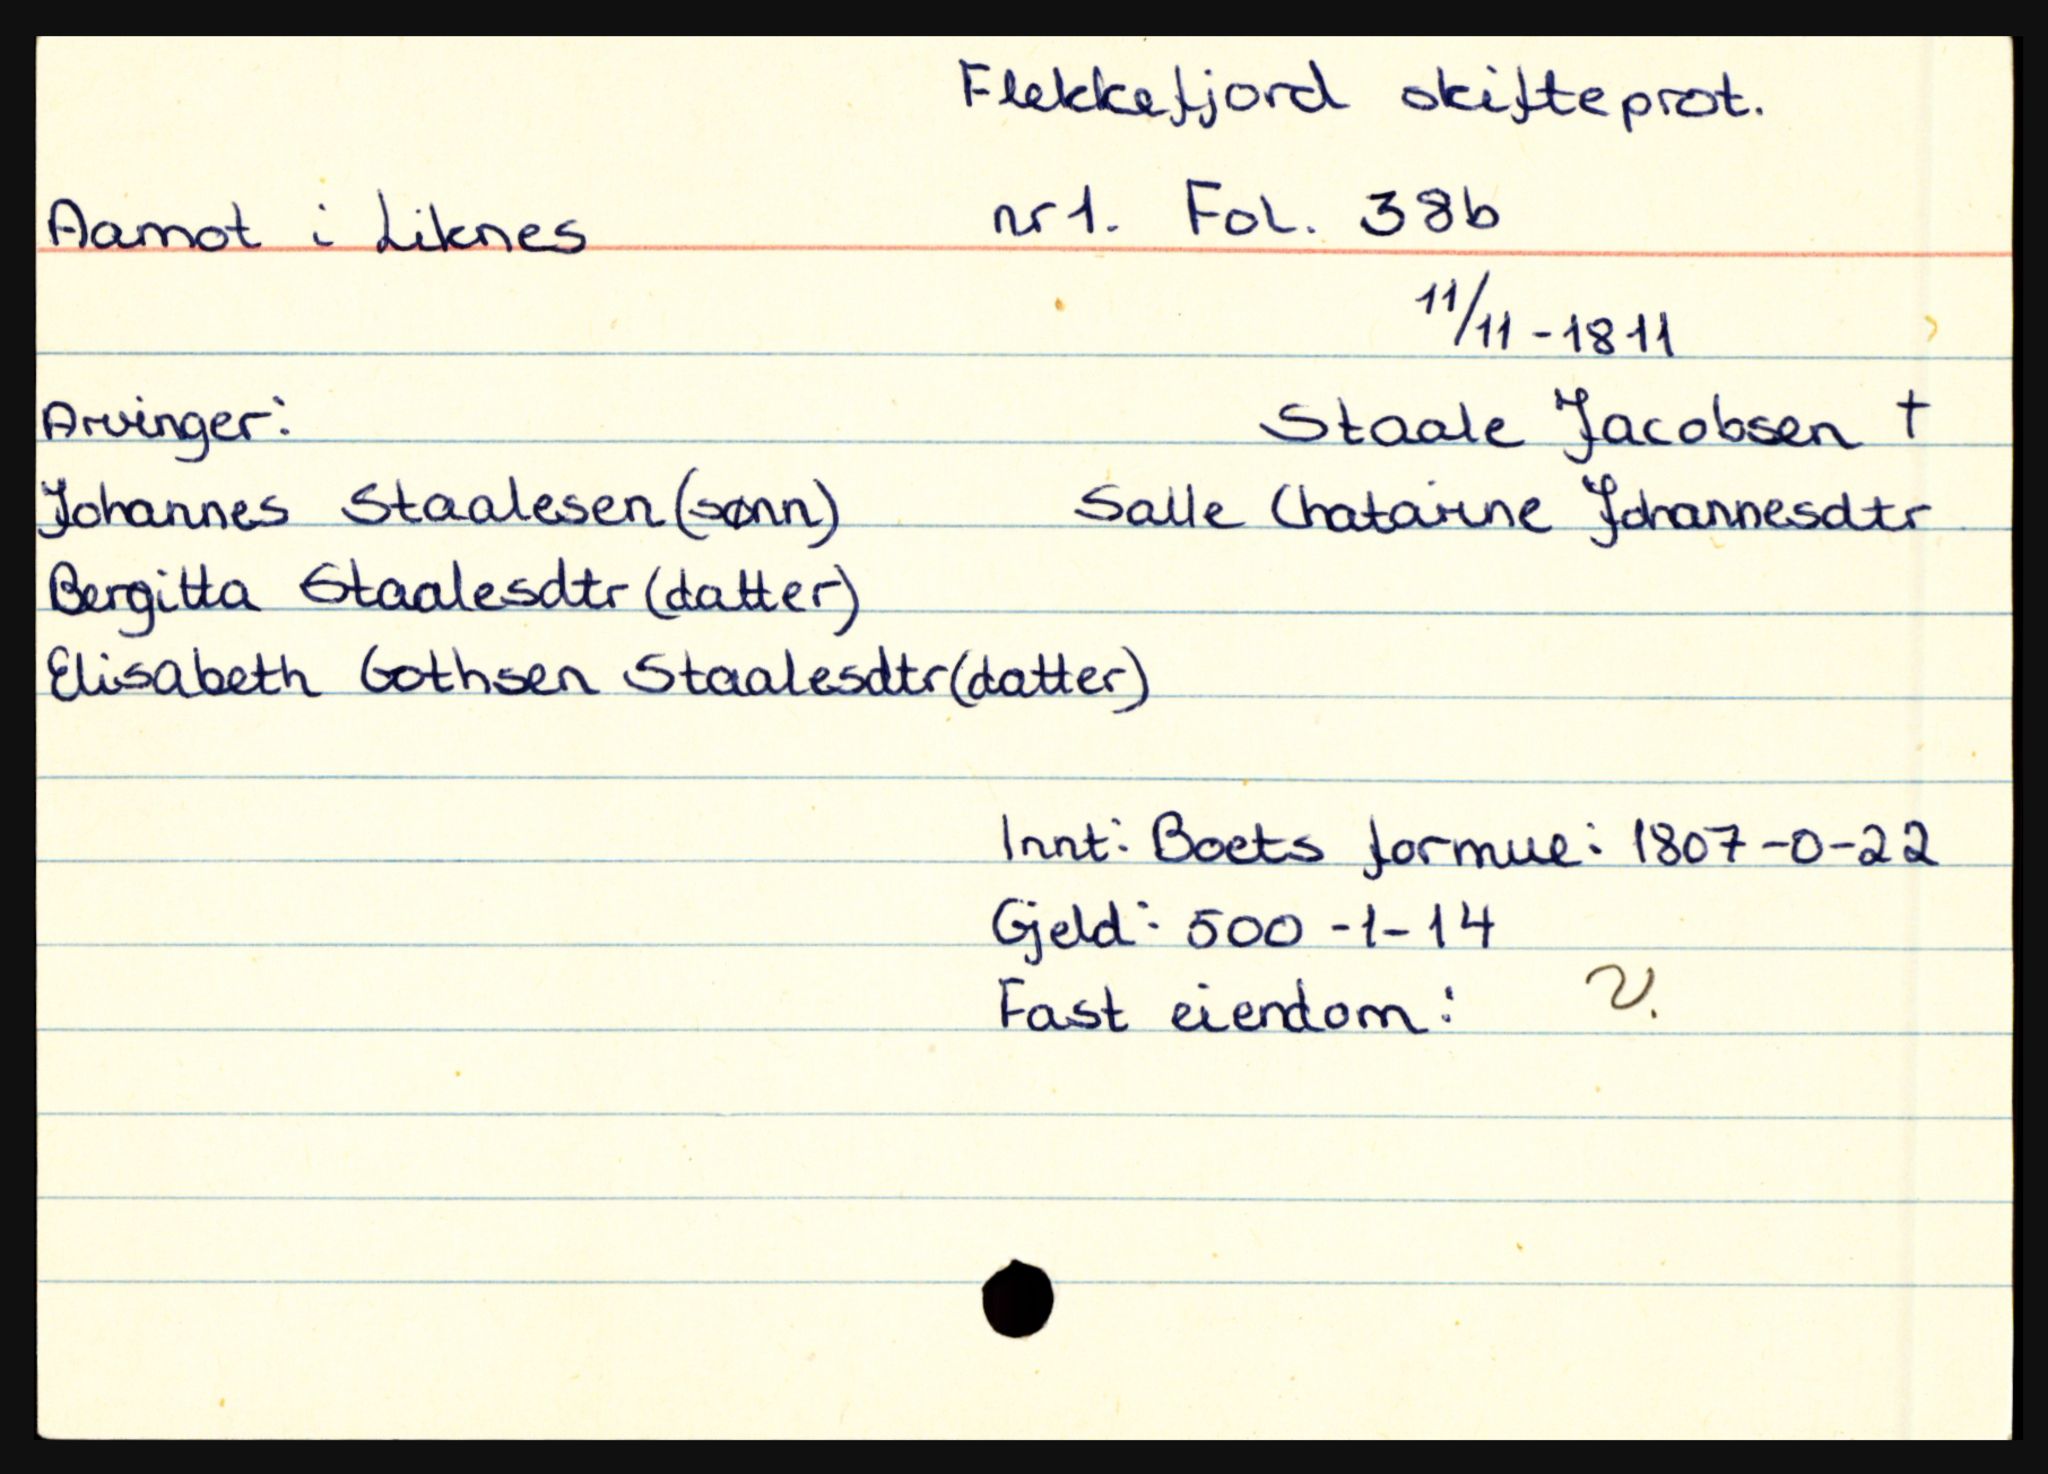 Flekkefjord skifteprot.
Aamot i Liknes nr 1. Fol. 38b
11/11-1811
Arvinger: Staale Jacobsen †
Johannes Staalesen (sønn) Salle Chatarine Johannesdtr
Bergitta Staalesdtr (datter)
Elisabeth Gothsen Staalesdtr (datter)
Innt: Boets formue: 1807-0-22
Gjeld: 500-1-14
Fast eiendom: